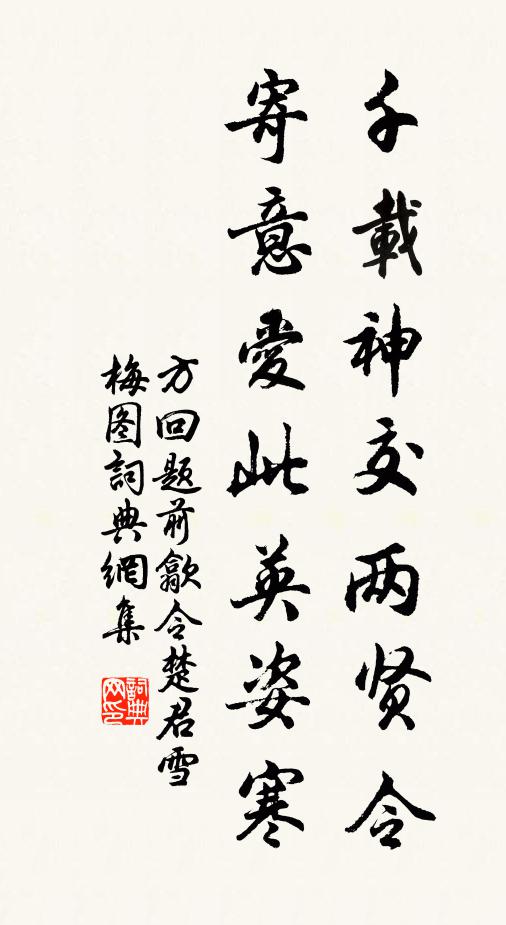 千載神交两贤令
寄意愛此英姿寒
方回题前歙令楚君雪
梅图詞典網集
詞典网印